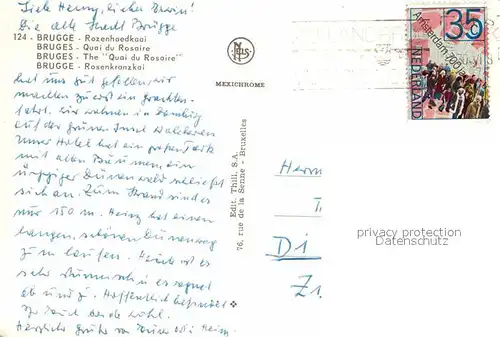 Liebe Henny, lieber Erwin!
Die alte Stadt Brügge
124 - BRUGGE - Rozenhoedkaai
BRUGES - Quai du Rosaire
BRUGES - The "Quai du Rosaire"
BRÜGGE - Rosenkranzkai
hat uns gut gefallen wir
machten zuerst ein Grachten-
fahrt. Wir wohnen in Domburg
auf der grünen Insel Walcheren
Unser Hotel hat ein großen Park
mit alten Bäumen, ein
üppiger Dünenwald schließt
sich an. Zum Strand sind es
nur 150 m. Heinz hat einen
langen, schönen Dünenweg
zu laufen. Heute ist es
sehr stürmisch u. es regnet
ab und zu. Hoffentlich befindet
Ihr Euch beide wohl.
Herzliche Grüße von Heinz
NELS
MEXICHROME
Edit. Thill, S.A.
76, rue de la Senne - Bruxelles
35
Amsterdam 700
NEDERLAND
Herrn
Di
privacy protection
Datenschutz